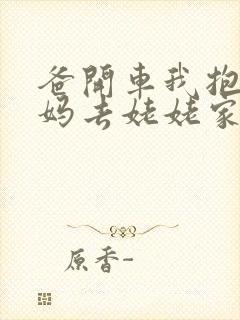 爸開車我抱
妈去姥姥家
原香-